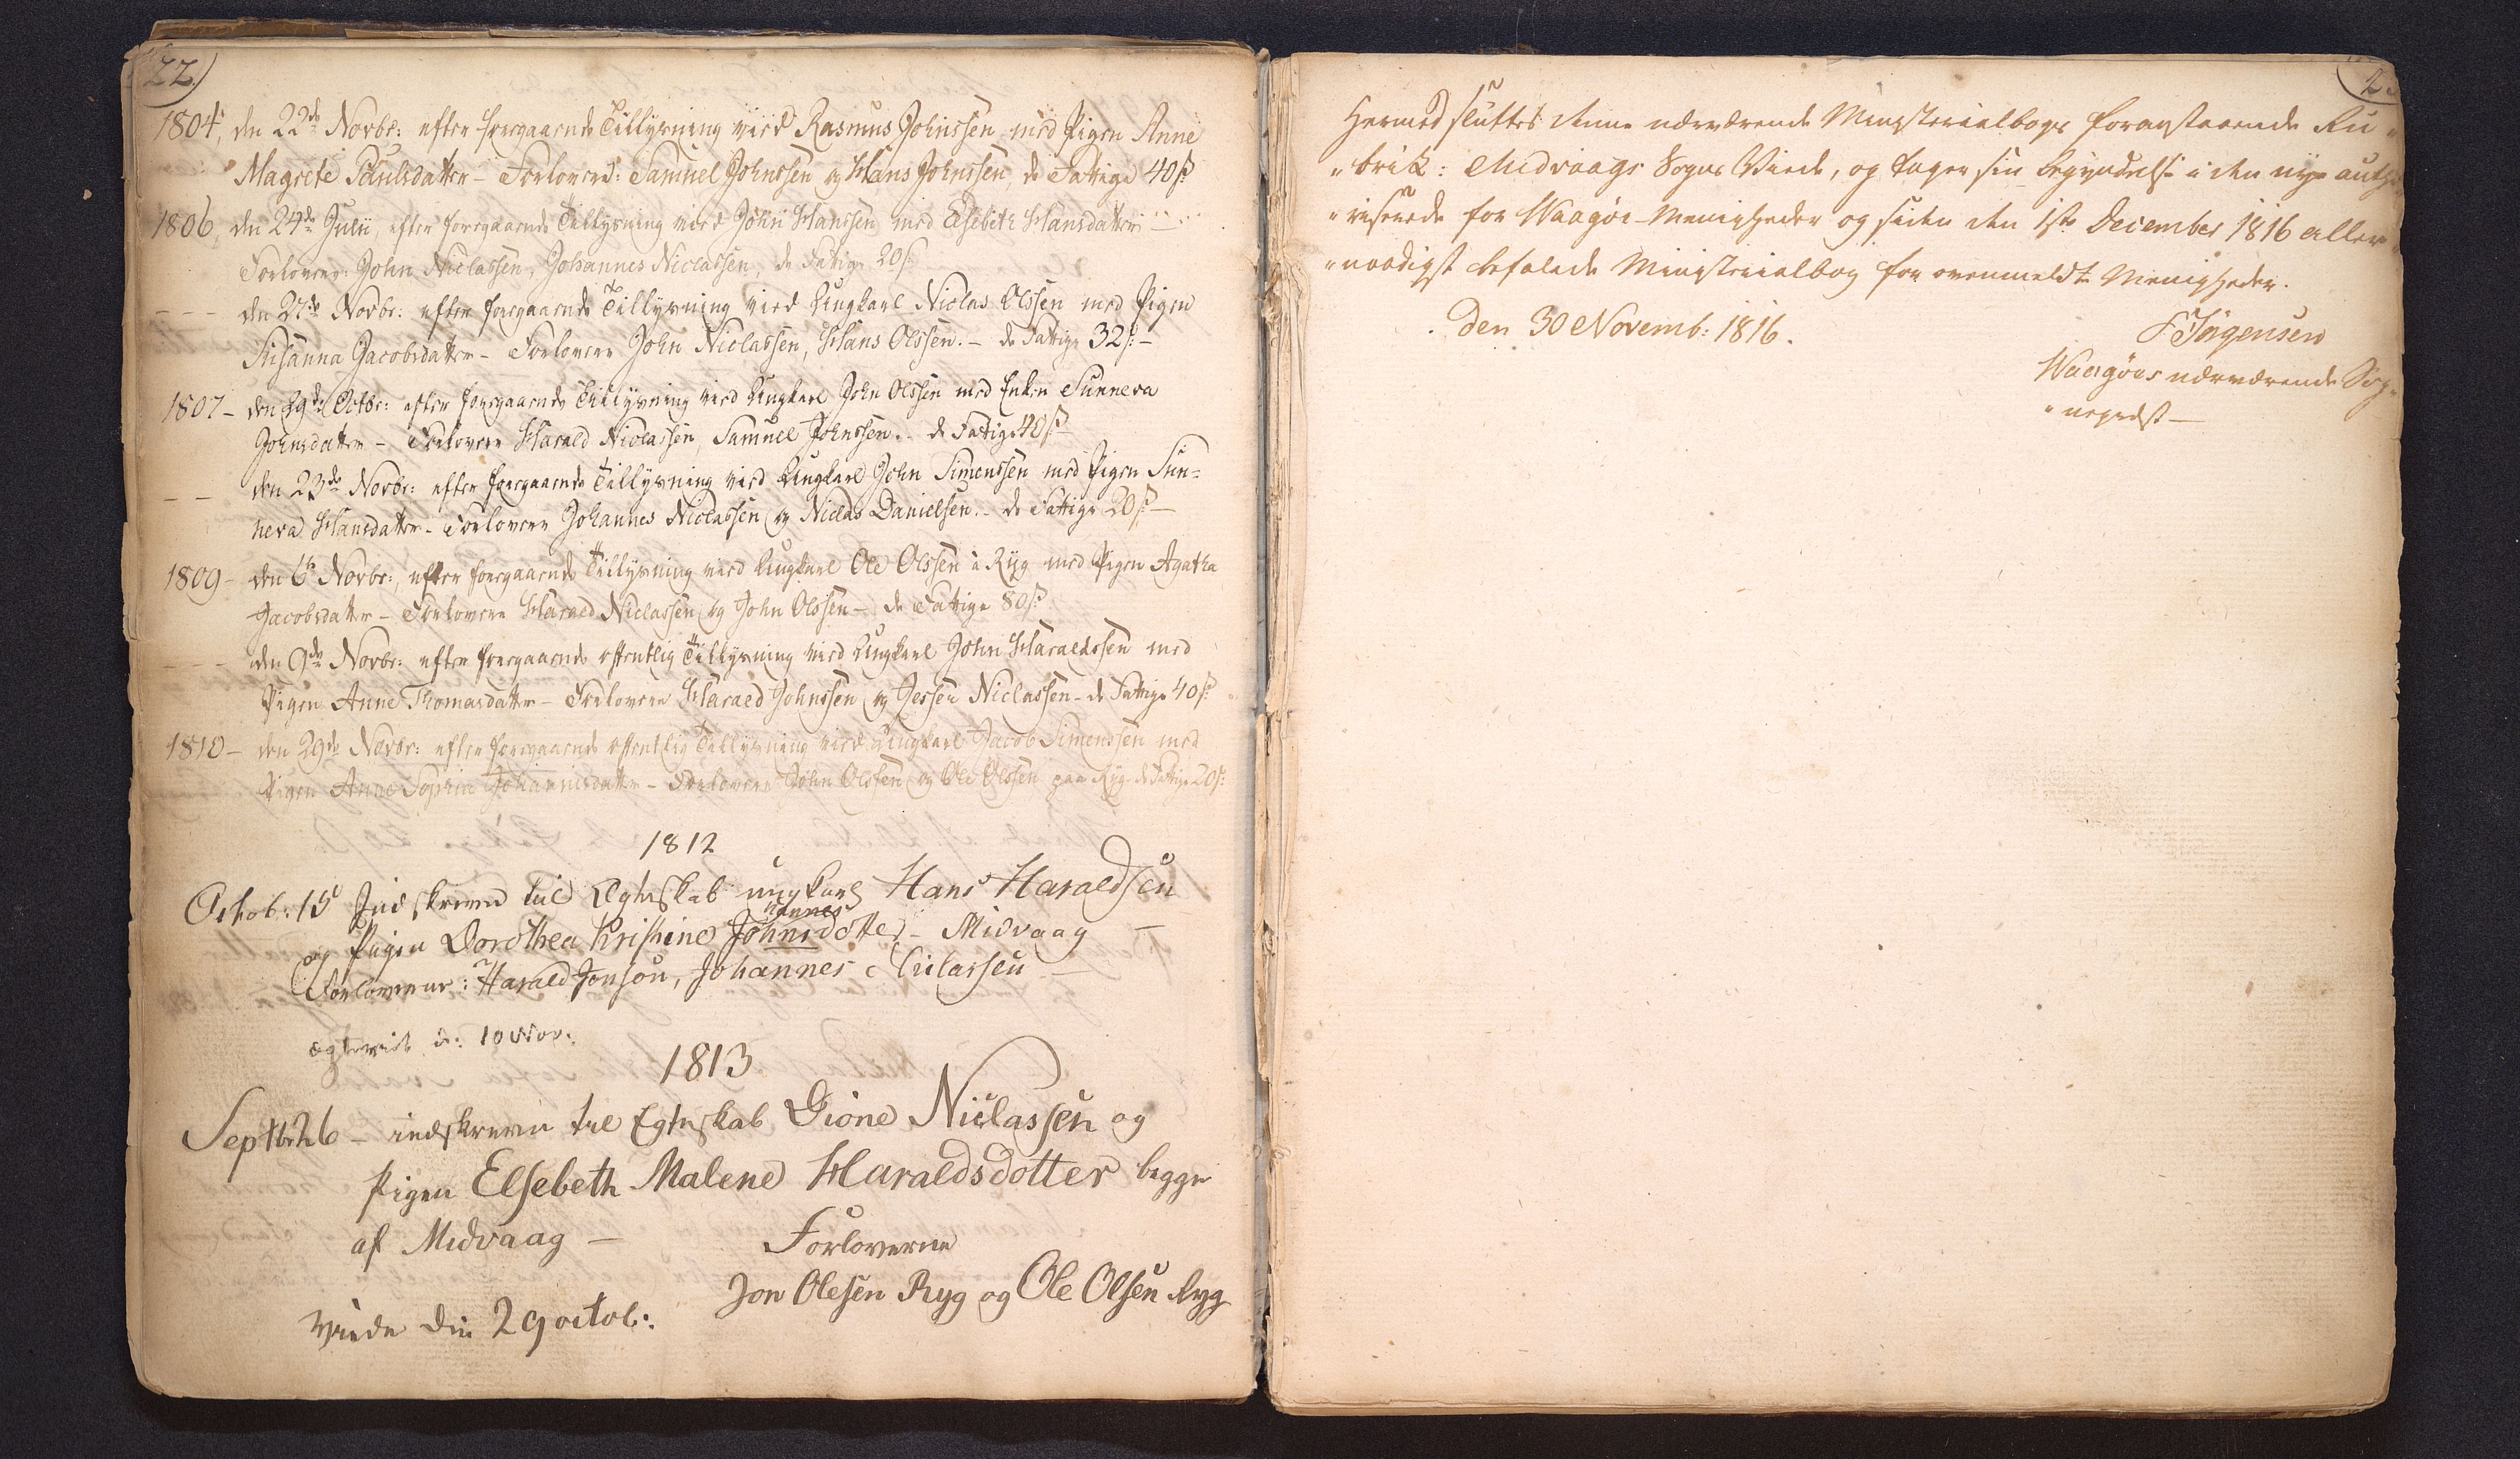 22)
1804, den 22de Novbr: efter foregaaende Tillysning vied Rasmus Johnssen med Pigen Anne
Magrete Poulsdatter - Forlovere: Samuel Johnssen og Hans Johnssen, de Fattige 40ß
1806, den 24de Julii, efter foregaaende Tillysning viet John Hanssen med Elsebeth Hansdatter -
Forlovere: John Niclassen, Johannes Niclassen, de Fattige 20ß
- - - den 27de Novbr: efter foregaaende Tillysning vied Ungkarl Niclas Olssen med Pigen
Susanna Jacobsdatter - Forlovere John Niclassen, Hans Olssen. - de Fattige 32ß: -
1807 - den 29de Octbr: efter foregaaende Tillysning vied Ungkarl John Olssen med Enken Sunneva
Johnsdatter - Forlovere Harald Niclassen, Samuel Johnssen. - de Fattige 40ß -
- - den 23de Novbr: efter foregaaende Tillysning vied Ungkarl John Simenssen med Pigen Sun=
neva Hansdatter - Forlovere Johannes Niclassen og Niclas Danielsen. - de Fattige 20ß -
1809 - den 6te Novbr:, efter foregaaende Tillysning vied Ungkarl Ole Olssen i Ryg med Pigen Agatha
Jacobsdatter - Forlovere Harald Niclassen og John Olssen - de Fattige 80ß:
- - - den 9de Novbr: efter foregaaende offentlig Tillysning vied Ungkarl John Haraldssen med
Pigen Anne Thomasdatter - Forlovere Harald Johnssen og Jesser Niclassen - de Fattige 40ß:
1810 - den 29de Novbr: efter foregaaende offentlig Tillysning vied Ungkarl Jacob Simenssen med
Pigen Anne Sophia Johannisdatter - Forlovere John Olssen og Ole Olssen paa Ryg de Fattige 20ß:
1812
Octob: 15 Indskreven til Ægteskab ungkarl Hans Haraldsen
hannes
og Pigen Dorothea Kristine Johnsdotter - Midvaag -
Forloverne: Harald Jonson, Johannes Niclassen -
Ægteviet d: 10 Nov:
1813
Septbr 26 - indskreven til Egteskab Dione Niclassen og
Pigen Elsebeth Malene Haraldsdotter begge
af Midvaag -
Forloverne
Jon Olesen Ryg og Ole Olsen Ryg
Viede den 29 octob:
Hermed sluttes denne nærværende Ministerialbogs foranstaaende Ru "
" brik: Midvaags Sogns Viede, og tager sin Begyndelse i den nye autho
" riserede for Waagøe Menigheder og siden den 1ste December 1816 aller
" naadigst befalede Ministerialbog for ovenmeldte Menigheder.
Den 30 Novemb: 1816.
F Jørgensen
Waagøes nærværende Sog-
" nepræst -